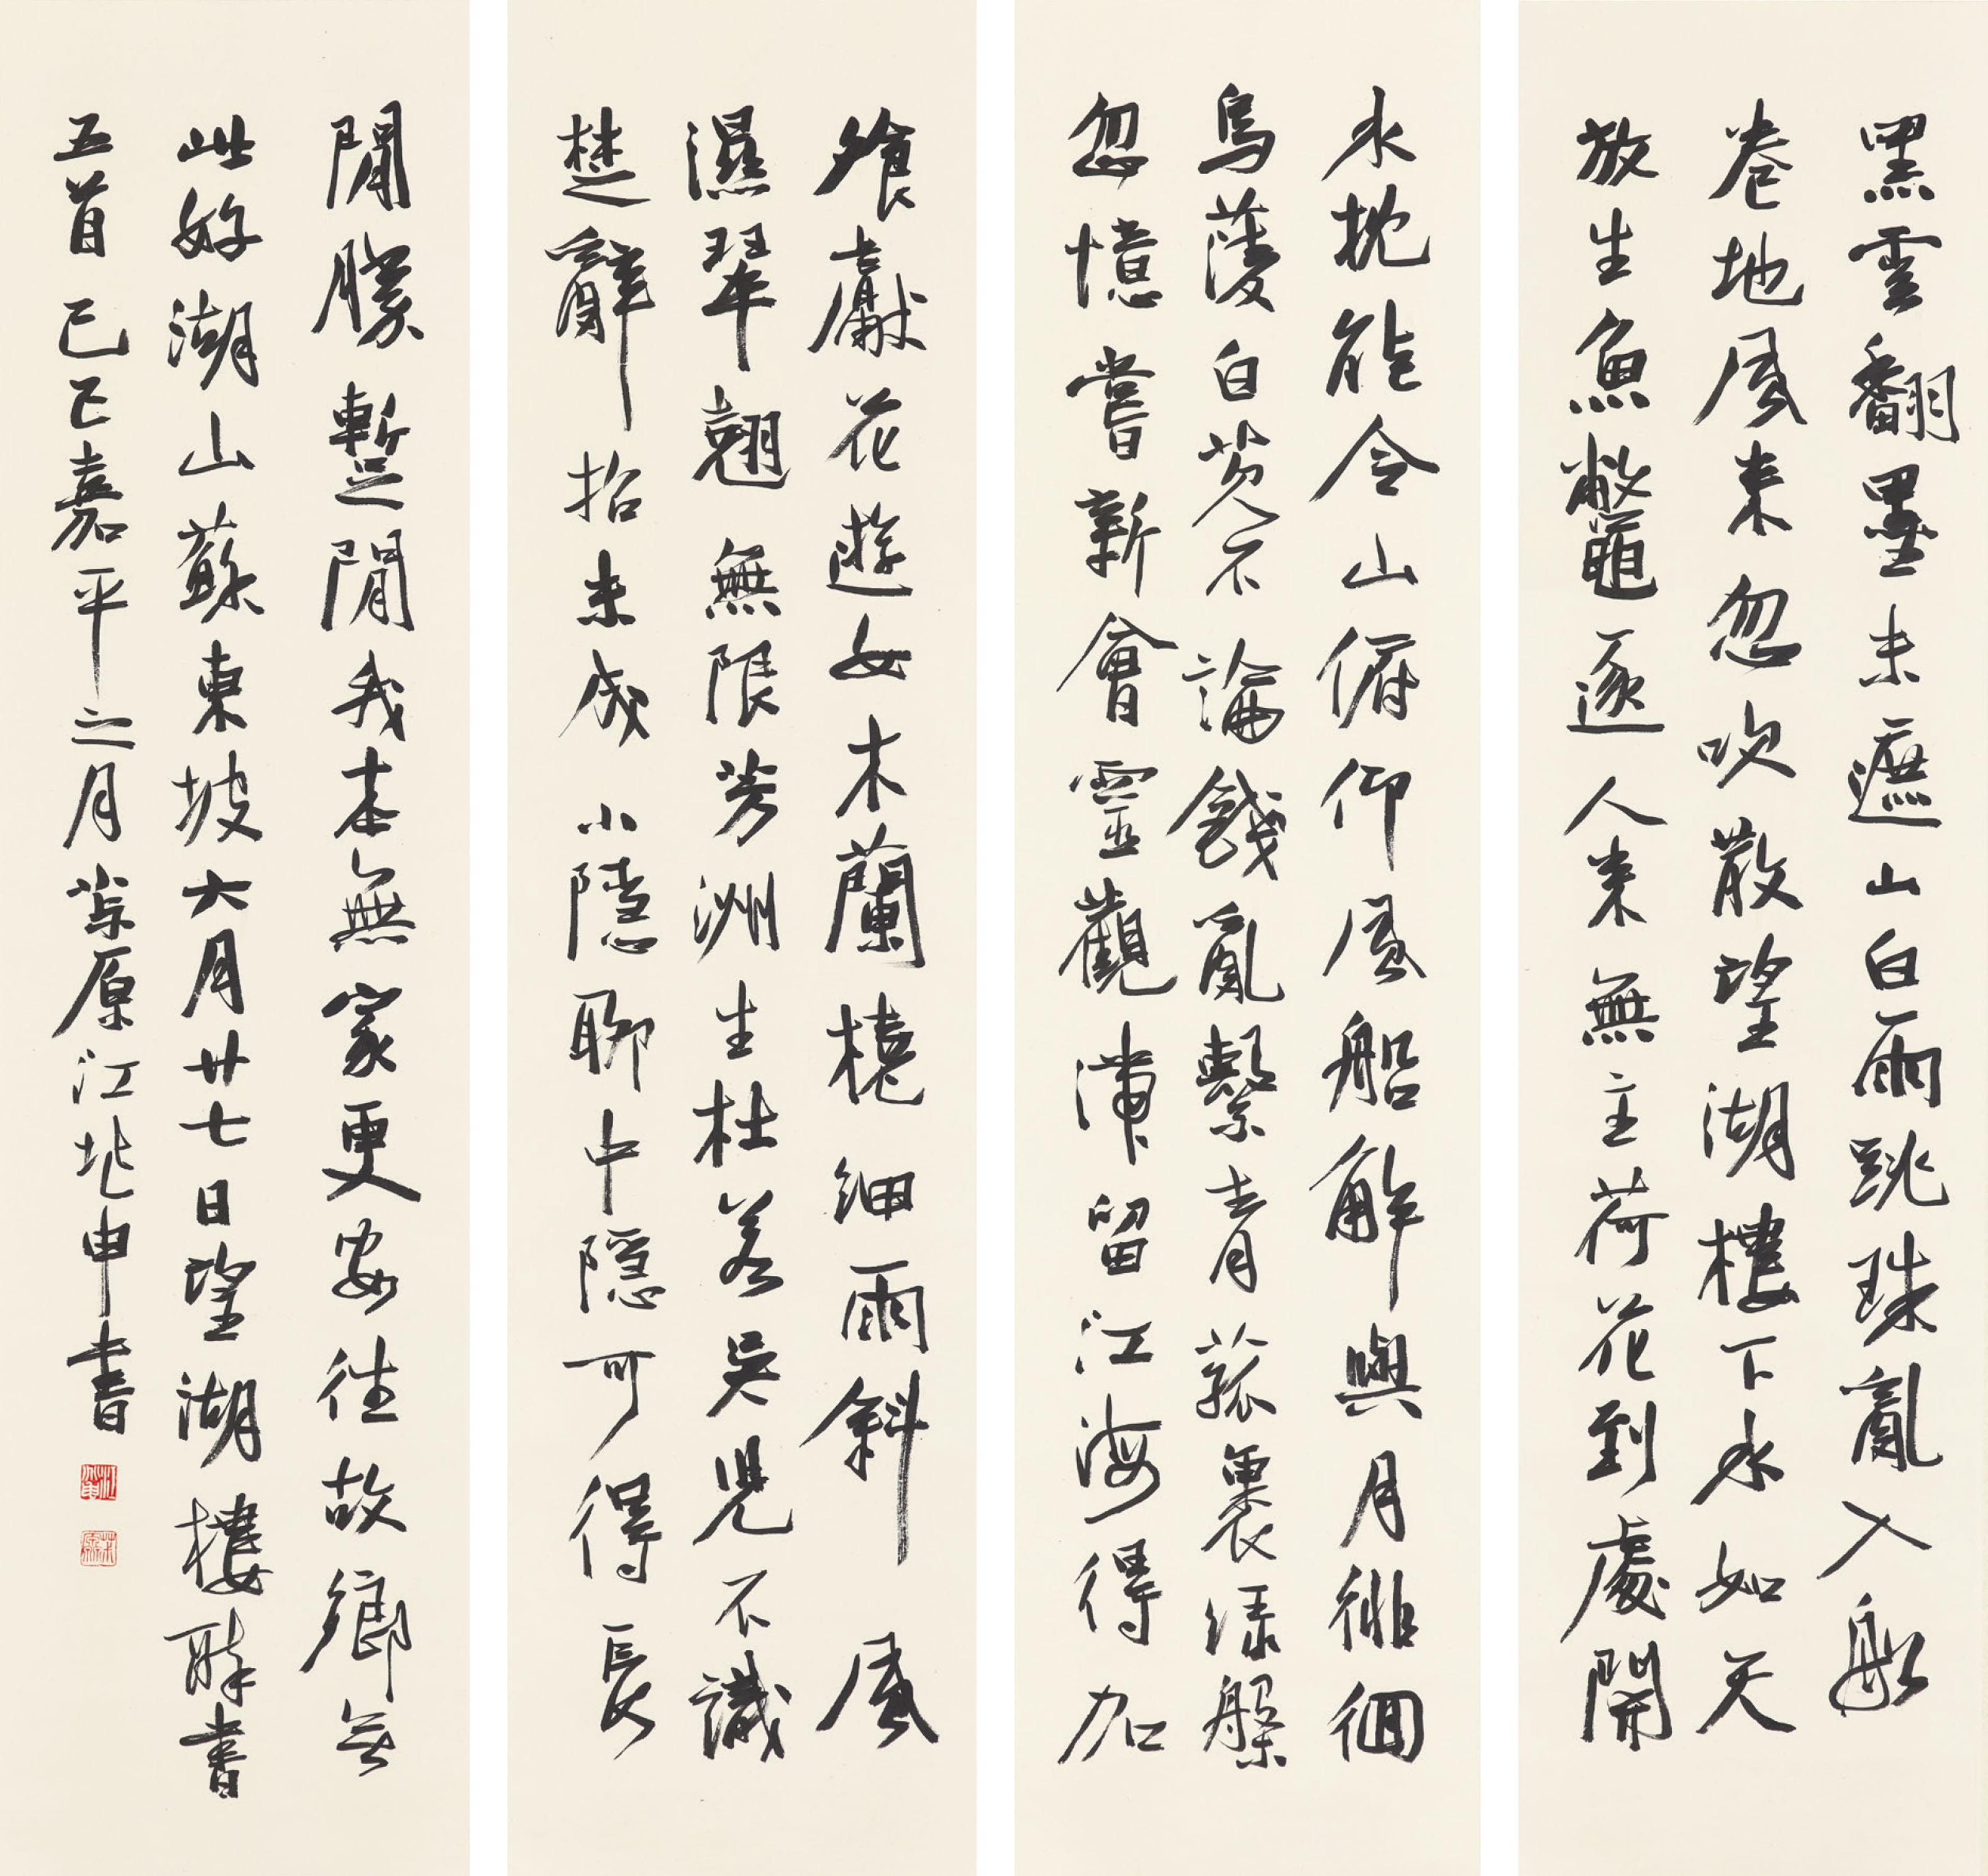 黑雲翻墨未遮山白雨跳珠亂入船
卷地風來忽吹散望湖樓下水如天
放生魚鱉逐人來無主荷花到處開
水枕能令山俯仰風船解與月徘徊
烏菱白芡不論錢亂繫青菰裹綠盤
忽憶嘗新會靈觀滯留江海得加
飡獻花遊女木蘭橈細雨斜風
濕翠翹無限芳洲生杜若吳兒不識
楚辭招未成小隱聊中隱可得長
閒勝暫閒我本無家更安往故鄉無
此好湖山蘇東坡六月廿七日望湖樓醉書
五首己巳嘉平之月茮原江兆申書